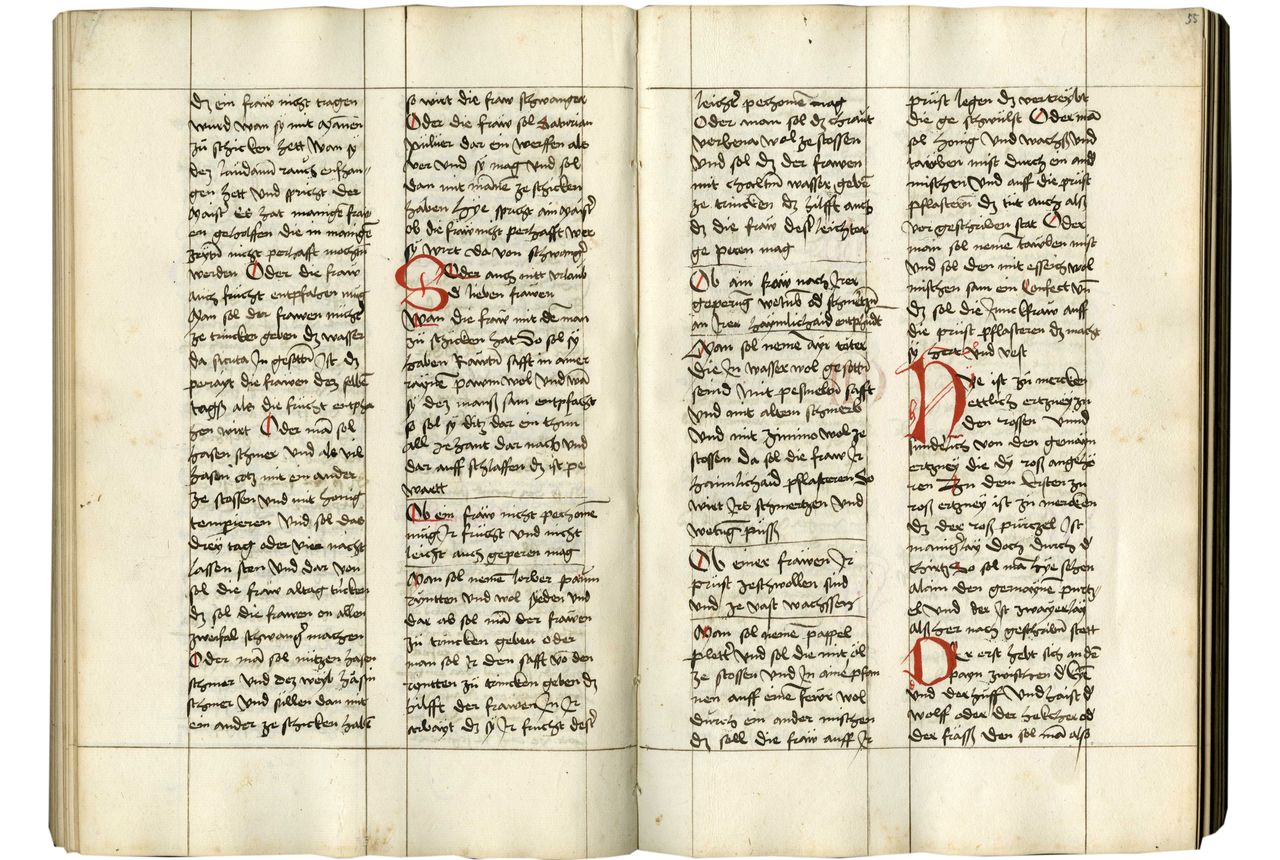 dz ein fraw nicht tragen
wurd wan sy mit mannen
zu schicken hett wan sy
den laudanum rauch enpfan-
gen hett Und spricht der
maist Es hat manige fraw
en geholffen die in manige
zeytn nicht perhafft mochtn
werden Oder die fraw
auch frücht entpfahen mug
Man sol den frawen nicht
ze trincken geben dz wasser
da in gesotn ist dz
die frawen dez selbn
tagß als die frücht entpfa
hen wirt Oder mā sol
hasen schmer und als vil
hasen mit ein ander
ze stossen und mit honig
tempieren und sol das
drey tag oder vier nacht
lassen sten und dar von
sol die fraw altag trīcken
dz sol die frawen on allen
zweifal schwanger machen
Oder mā sol nützen hasen
schmer und dez weyb häsin
schmer und süllen dan mit
ein ander ze schicken habn
so wirt die fraw schwanger
Oder die fraw sol
puluer dar ein werffen als
ver und sy mag und sol
dan mit māne ze schicken
haben Hye spricht ain maistr
ob die fraw nicht perhafft wer
sy wirt da von schwangr
Oder auch mitt urlaub
d lieben frawen
Wan die fraw mit dē man
zu schicken hat So sol sy
haben Rawtn safft in ainer
rainen pawmwol und wā
sy dez manß sam entpfacht
so sol sy ditz dar ein thun
all zehant dar nach und
dar auff schlaffen dz ist pe
waert
Ob ein fraw nicht pechome
mug Ir frücht und nicht
leicht auch geperen mag
Man sol nemē lorber paum
rynten und wol syeden und
dar ab sol mā der frawen
zu trincken geben oder
man sol Ir den safft vō den
rynten zu trincken geben dz
hilfft der frawen In Ir
arbayt dz sy Ir frücht dest
leichtr pechomē mag
Oder man sol dz chraut
verbena wol ze stossen
und sol dz der frawen
mit chaltm wasser gebē
ze trincken dz hilfft auch
dz die fraw dest leichter
ge peren mag
Ob ain fraw nach Irer
geperūg wetub od schmertzn
an Irer haymlichaid entpfindt
Man sol nemē ayr toter
die In wasser wol gesotn
seind mit safft
und mit altem schmerb
und mit zimmo wol ze
stossen da sol die fraw Ir
haimlichaid pflasteren So
wirt Irs schmertzen und
wetug puss
Ob einer frawen Ir
prüst zeschwollen sind
und ze vast wachssen
Man sol nemē pappel
plettr und sol die mit öl
ze stossen und In aine pfan
nen auff einē fewr wol
durch ein ander mischen
dz soll die fraw auff Ir
prüst legen dz vertreybt
die ge schwulst Oder mā
sol honig und wachss und
tawben mist durch en and
mischen und auff die prüst
pflastern dz tut auch als
vor geschriben stet Oder
man sol nemē tawben mist
und sol den mit essich wol
mischen sam ein Confect vn
dz sol die Junckfraw auff
die prüst pflasteren dz macht
sy hert und vest
Hye ist zu mercken
ettlich ertzney zu
den rossen unnd
sunderlich von den gemayn
ertzney die dy roß angehö
ren Zu dem Ersten zu
roß ertzney ist zu mercken
dz der roß pürtzel Ist
manigrlay doch durch d
chürtz So sol mā hye sehen
alain den gemaynē purtz-
el und der Ist zwayerlay
alß her nach geschribn stett
Der erst hebt sich an dē
payn zwischen d
und der huff und haist d
wolff oder der hekcher od
der frass den sol mā also
55